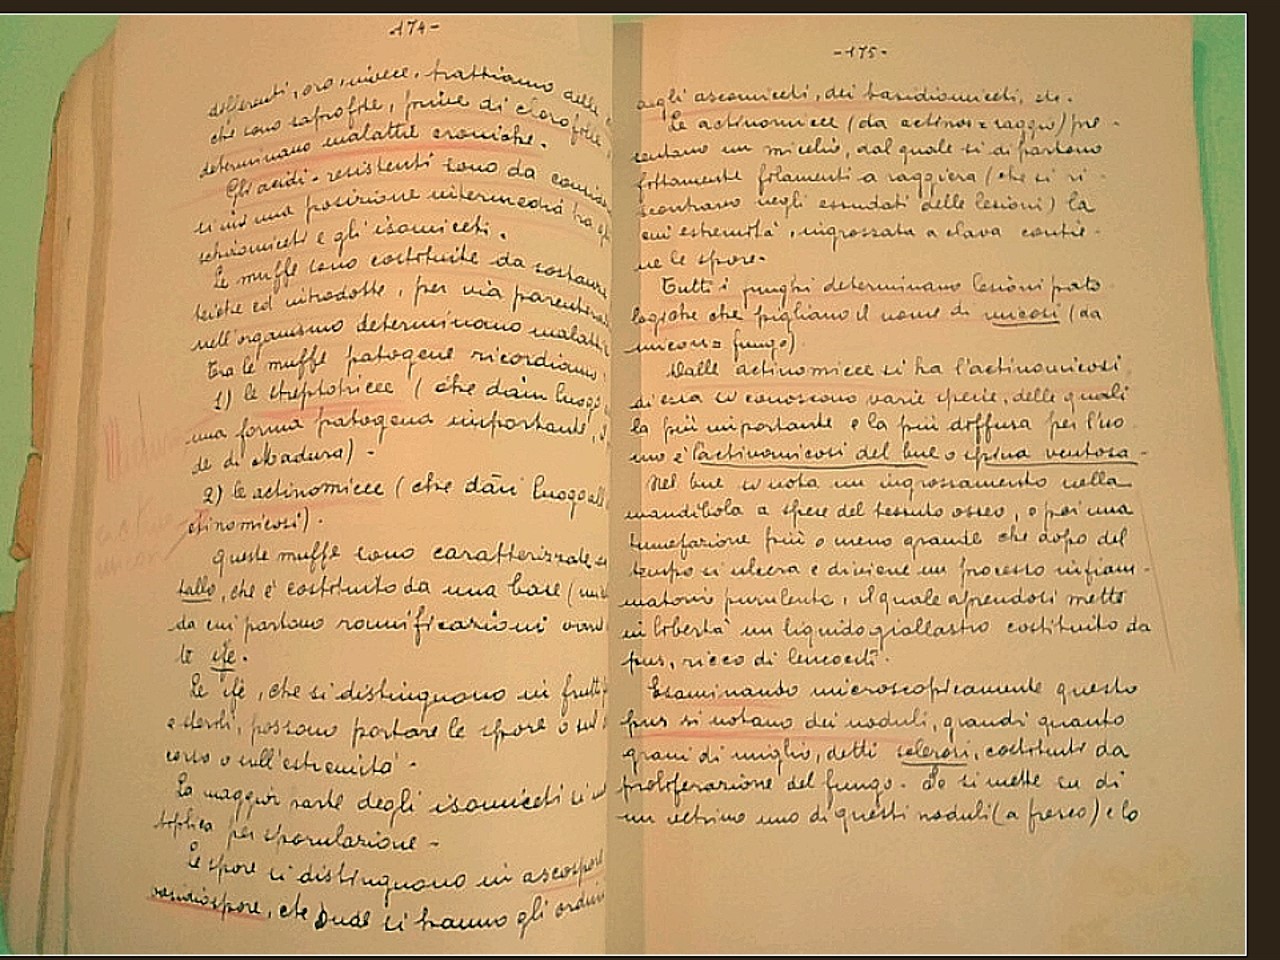 -174-
differenti, ora, invece, trattiamo delle
che sono saprofite, prive di clorofilla,
determinano malattie croniche.
Gli acidi-resistenti sono da consi
si in una posizione intermedia tra gli
schizomiceti e gli isomiceti.
Le muffe sono costituite da sostanze
ed introdotte, per via parenterale
nell'organismo determinano malattie
Tra le muffe patogene ricordiamo:
1) le streptotricee (che dàn luogo
una forma patogena importante,
de di Madura).
2) le actinomicee (che dàn luogo all'
ctinomicosi).
Queste muffe sono caratterizzate
tallo, che è costituito da una base (mi
da cui partono ramificazioni
te ife.
Le ife, che si distinguono in frutti
e sterili, possono portare le spore o sul
corso o sull'estremità.
La maggior parte degli isomiceti si
tiplica per sporulazione.
Le spore si distinguono in ascospore
basidiospore, che onde si hanno gli ordini
-175-
degli ascomiceti, dei basidiomiceti, etc.
Le actinomicee (da actinos=raggio) pre-
sentano un micelio, dal quale si dipartono
fittamente filamenti a raggiera (che si ri-
scontrano negli essudati delle lesioni) la
cui estremità, ingrossata a clava contie-
ne le spore.
Tutti i funghi determinano lesioni pato
logiche che pigliano il nome di micosi (da
micos= fungo).
Dalle actinomicee si ha l'actinomicosi,
di essa si conoscono varie specie, delle quali
la più importante e la più diffusa per l'uo
mo è l'actinomicosi del bue o spina ventosa.
Nel bue si nota un ingrossamento nella
mandibola a spese del tessuto osseo, e poi una
tumefazione più o meno grande che dopo del
tempo si ulcera e diviene un processo infiam-
matorio purulento, il quale aprendosi mette
in libertà un liquido giallastro costituito da
pus, ricco di leucociti.
Esaminando microscopicamente questo
pus si notano dei noduli, grandi quanto
grani di miglio, detti sclerosi, costituiti da
proliferazione del fungo. Se si mette su di
un vetrino uno di questi noduli (a fresco) e lo